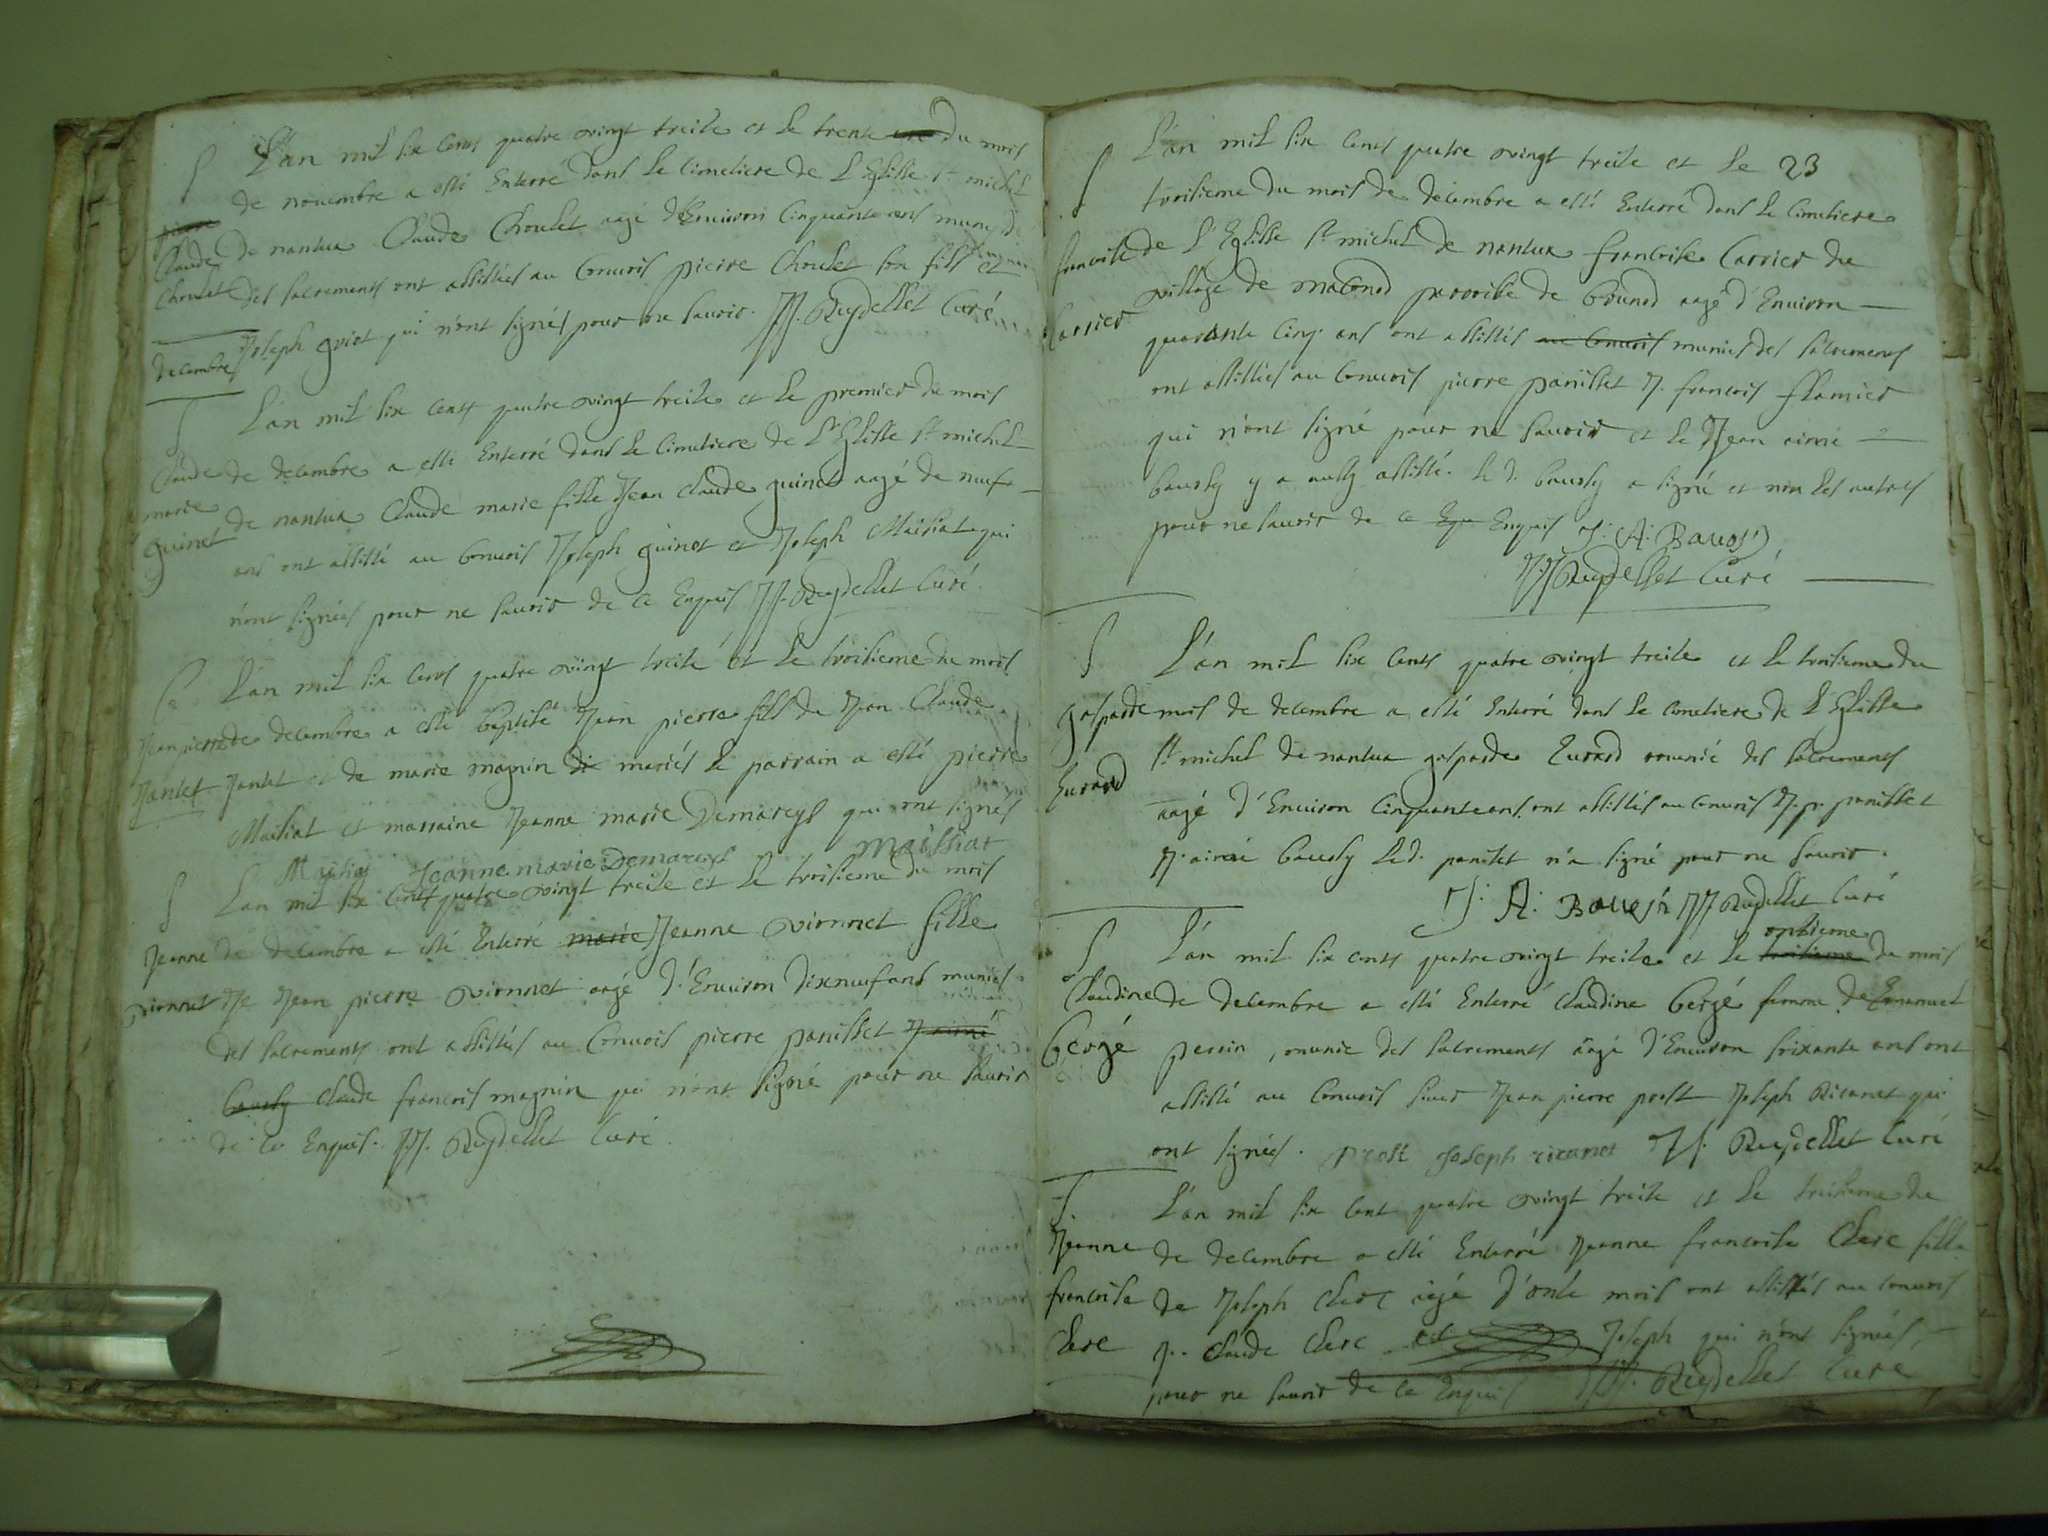 L'an mil six cents quatre vingt treize et le trente du mois
de novembre a esté Enterré dans le Cimetiere de L'Eglisse st michel
Claude de nantua Claude Choulet aagé d'Environ Cinquante ans muni
Choulet des sacrements ont assistés au Convois pierre Choulet son fils et
Joseph guiot qui n'ont signés pour ne savoir. JJ. Reydellet Curé
decembre
L'an mil six cents quatre vingt treize et le premier du mois
Claude de decembre a esté Enterré dans le Cimetiere de L'Eglisse st michel
marie de nantua Claude marie fille Jean Claude guinet aagé de neuf
guinet ans ont assisté au Convois Joseph guinet et Joseph Maissiat qui
n'ont signés pour ne savoir de ce Enquis JJ. Reydellet Curé
L'an mil six cens quatre vingt treize et le troisieme du mois
Jean pierre de decembre a esté baptisé Jean pierre fils de Jean Claude
Jantet Jantet et de marie magnin mariés le parrain a esté pierre
Maissiat et marraine Jeanne marie Demareys qui ont signés
Jeanne marie Demareys Maissiat
L'an mil six cents quatre vingt treize et le troisieme du mois
Jeanne de decembre a esté Enterré marie Jeanne vionnet fille
vionnet de Jean pierre vionnet aagé d'Environ dixneuf ans munies
des sacrements ont assistés au Convois pierre panisset J aimé
bausly Claude francois magnin qui n'ont signé pour ne savoir
de ce Enquis. JJ. Reydellet Curé
L'an mil six cents quatre vingt treize et le 23
troisieme du mois de decembre a esté Enterré dans le Cimetiere
francoise de L'Eglisse st michel de nantua francoise Carrier du
village de maconod parroisse de brenod aagé d'Environ
Carrier quarante cinq ans ont assistés au Convois munies des sacrements
ont assistés au Convois pierre panisset J. francois flamier
qui n'ont signé pour ne savoir et le Jean aimé
bausly y a aussy assisté. le d. bausly a signé et non les autres
pour ne savoir de ce Enquis J. A. Bauosy
JJ Reydellet Curé
L'an mil six cents quatre vingt treize et le troisieme du
gasparde mois de decembre a esté Enterré dans le Cimetiere de L'Eglisse
st michel de nantua gasparde Eurard munie des sacrements
Eurard aagé d'Environ Cinquante ans ont assistés au Convois J. p. panisset
J. aimé bausly le d. panisset n'a signé pour ne savoir.
J. A. JJ Reydellet Curé
onzieme
L'an mil six cents quatre vingt treize et le troisieme du mois
Claudine de decembre a esté Enterré Claudine bergé femme de Emanuel
bergé perrin, munie des sacrements aagé d'Environ soixante ans ont
assisté au Convois sieur Jean pierre prost Joseph Ricanet qui
ont signés. prost Joseph ricanet JJ. Reydellet Curé
L'an mil six cent quatre vingt treize et le treizieme du
Jeanne de decembre a esté Enterré Jeanne francoise Clerc fille
francoise de Joseph Clerc aagé d'onze mois ont assistés au convois
Clerc J. Claude Clerc et Joseph qui n'ont signés
pour ne savoir de ce Enquis JJ. Reydellet Curé